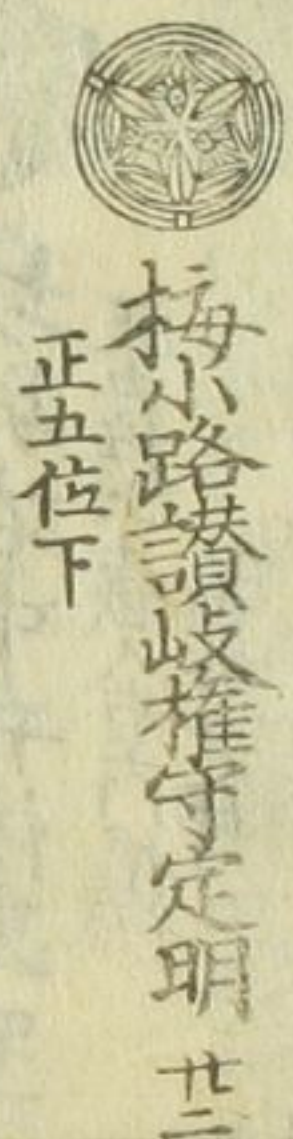 梅小路讃岐権守定明 廿二
正五位下